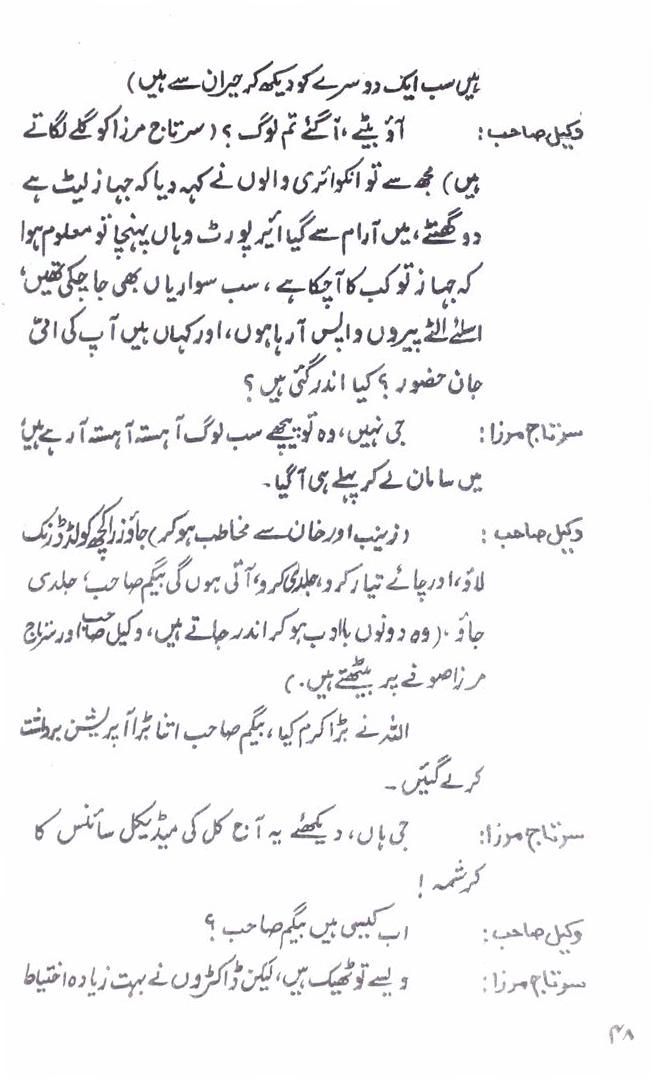 ہیں سب ایک دوسرے کو دیکھ کر حیران سے ہیں)
وکیل صاحب: آؤ بیٹے، آگئے تم لوگ؟ (سرتاج مرزا کو گلے لگاتے
ہیں) مجھ سے تو انکوائری والوں نے کہہ دیا کہ جہاز لیٹ ہے
دو گھنٹے، میں آرام سے گیا ائیرپورٹ وہاں پہنچا تو معلوم ہوا
کہ جہاز تو کب کا آچکا ہے، سب سواریاں بھی جا چکی تھیں،
اسلئے الٹے پیروں واپس آرہا ہوں، اور کہاں ہیں آپ کی امّی
جان حضور؟ کیا اندر گئی ہیں؟
سرتاج مرزا: جی نہیں، وہ تو پیچھے سب لوگ آہستہ آہستہ آرہے ہیں
میں سامان لے کر پہلے ہی آگیا۔
وکیل صاحب: (زینب اور خان سے مخاطب ہوکر) جاؤ ذرا کچھ کولڈ ڈرنک
لاؤ، اور چائے تیار کرو، جلدی کرو، آتی ہوں گی بیگم صاحب، جلدی
جاؤ۔ (وہ دونوں باادب ہوکر اندر جاتے ہیں، وکیل صاحب اور سرتاج
مرزا صوفے پر بیٹھتے ہیں۔)
اللہ نے بڑا کرم کیا، بیگم صاحب اتنا بڑا آپریشن برداشت
کر لے گئیں۔
سرتاج مرزا: جی ہاں، دیکھئے یہ آج کل کی میڈیکل سائنس کا
کرشمہ!
وکیل صاحب: اب کیسی ہیں بیگم صاحب؟
سرتاج مرزا: ویسے تو ٹھیک ہیں، لیکن ڈاکٹروں نے بہت زیادہ احتیاط
۴۸